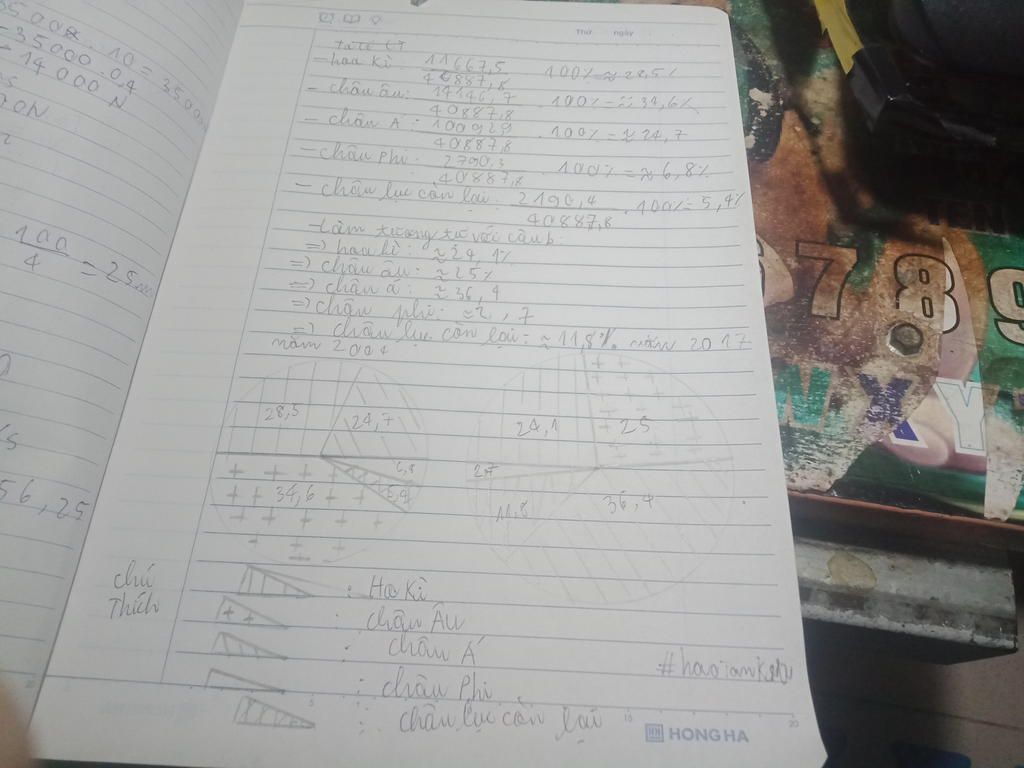 35.000
= 35000.04
= 14000 N
100
4
= 25
56,25
Thứ ngày
- hoa kì: 11667,5
40887,8
. 100% ≈ 28,5%
- châu âu: 14146,7
40887,8
. 100% = ≈ 34,6%
- châu Á:
40887,8
. 100% = ≈ 24,7
- châu phi: 2790,3
40887,8
. 100% = ≈ 6,8%
- châu lục còn lại: 2190,4
40887,8
. 100% = 5,4%
- Làm tương tự với câu b:
=) hoa kì: ≈ 24,1%
=) châu âu: ≈ 25%
=) châu á: ≈ 36,4
=) châu phi: ≈ 2,7
=) châu lục còn lại: ≈ 11,8%. năm 2017
năm 2004
28,5
24,7
6,8
5,4
34,6
24,1
25
2,7
11,8
36,4
chú
Thích
: Hoa Kì
: châu Âu
: châu Á
: châu Phi
: châu lục còn lại
5
15
20
HONG HA
6 7 8 9